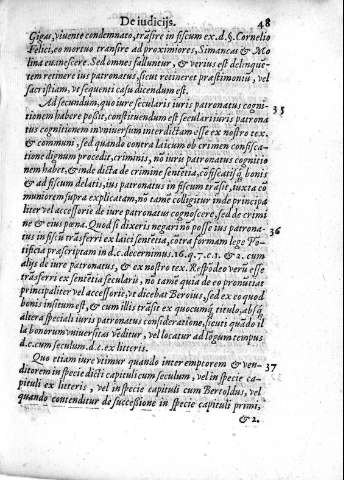 De iudicijs. 48
Gigas, viuente condemnato, trãsire in fiscum ex.d.§. Cornelio
Felici, eo mortuo transire ad proximiores, Simancas & Mo
lina cu. nescere. Sed omnes falluntur, & verius est delinquẽ
tem retinere ius patronatus, sicut retineret præstimoniũ, vel
sacristiam, vt sequenti casu dicendum est.
Ad secundum, quo iure secularis iuris patronatus cogni 35
tionem habere possit, constituendum est secularis iuris patrona
tus cognitionem in vniuersum interdictam esse ex nostro tex.
& communi, sed quando contra laicum ob crimen confisca-
tione dignum procedit, criminis, no iuris patronatus cognitio
nem habet, & inde dicta de crimine sentẽtia, cõfiscatisq; bonis
& ad fiscum delatis, ius patronatus in fiscum trãsit, iuxta cõ
muniorem supra explicatam, no tame colligitur inde principa
liter vel accessorie de iure patronatus cognoscere, sed de crimi
ne & eius pœna. Quod si dixeris negari no posse ius patrona- 36
tus in fiscũ trãsferri ex laici sentẽtia, cotra formam lege Po-
tificia præscriptam in d.c. decernimus. 16. q. 7. c. 1. & 2. cum
alijs de iure patronatus, & ex nostro tex. Respõdeo verũ esse
trãsferri ex sentẽtia secularis, no tame quia de eo pronutiat
principaliter vel accessorie, vt dicebat Beroius, sed ex eo quod
bonis insitum est, & cum illis trãsit ex quocumq; titulo, absq;
altera speciali iuris patronatus consideratione, sicuti quãdo il
la bonorum vniuersitas vẽditur, vel locatur ad logum tempus
d.c. cum seculum. d.c. ex litteris.
Quo etiam iure vtimur quando inter emptorem & ven- 37
ditorem in specie dicti capituli cum seculum, vel in specie ca-
pituli ex litteris, vel in specie capituli cum Bertoldus, vel
quando contenditur de successione in specie capituli primi,
& 2.